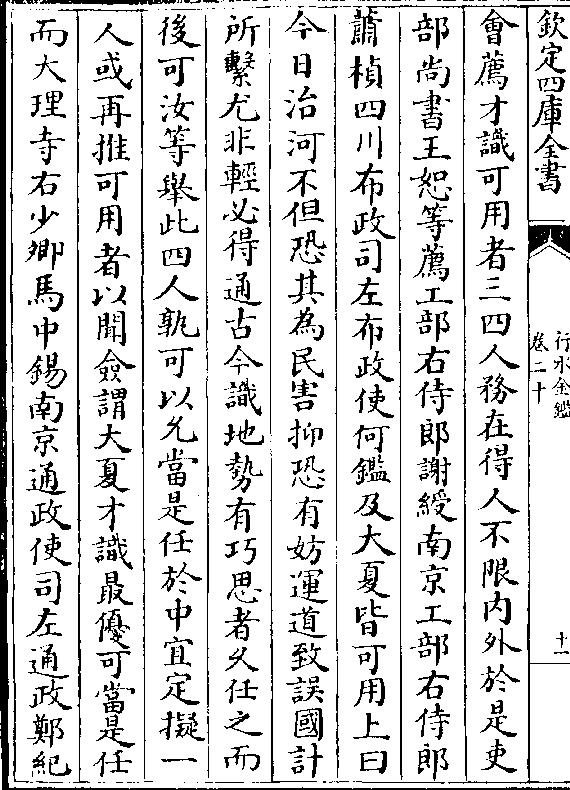 欽定四庫全書
行水金鑑
卷二十
十一
會薦才識可用者三四人務在得人不限内外於是吏
部尚書王恕等薦工部右侍郎謝綬南京工部右侍郎
蕭楨四川布政司左布政使何鑑及大夏皆可用上曰
今日治河不但恐其為民害抑恐有妨運道致誤國計
所繫尤非輕必得通古今識地勢有巧思者乆任之而
後可汝等舉此四人孰可以允當是任於中宜定擬一
人或再推可用者以聞僉謂大夏才識最優可當是任
而大理寺右少卿馬中錫南京通政使司左通政鄭紀